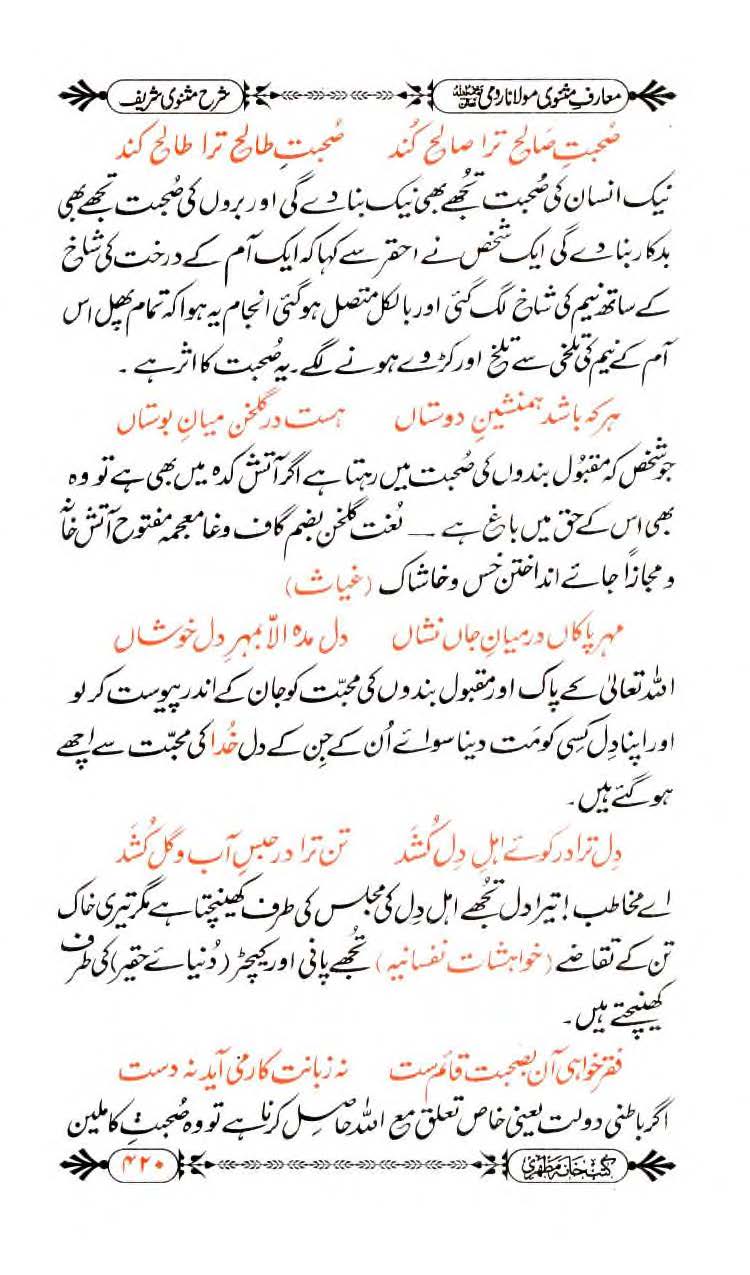 معارفِ مثنوی مولانا رومی رحمۃ اللہ علیہ
شرح مثنوی شریف
صُحبتِ صَالح ترا صالح کُند صُحبتِ طالح ترا طالح کند
نیک انسان کی صُحبت تجُھے بھی نیک بنا دے گی اور بروں کی صُحبت تجھے بھی
بدکار بنا دے گی ایک شخص نے احقر سے کہا کہ ایک آم کے درخت کی شاخ
کے ساتھ نیم کی شاخ لگ گئی اور بالکل متصل ہوگئی انجام یہ ہوا کہ تمام پھل اس
آم کے نیم کی تلخی سے تلخ اور کڑوے ہونے لگے۔ یہ صُحبت کا اثر ہے ۔
ہر کہ باشد ہمنشینِ دوستاں ہست در گلخن میانِ بوستاں
جو شخص کہ مقبُول بندوں کی صُحبت میں رہتا ہے اگر آتش کدہ میں بھی ہے تو وہ
بھی اس کے حق میں باغ ہے — لُغت گلخن بضم گاف و غا معجمہ مفتوح آتش خانہ
و مجازاً جائے انداختن خس و خاشاک (غیاث)
مہرِ پاکاں درمیانِ جاں نشاں دل مدہ الّا بمہرِ دل خوشاں
اللہ تعالیٰ کے پاک اور مقبول بندوں کی محبّت کو جان کے اندر پیوست کر لو
اور اپنا دِل کسِی کو مَت دینا سوائے اُن کے جِن کے دل خُدا کی محبّت سے اچھے
ہو گئے ہیں۔
دِل ترا در کوئے اہلِ دِل کُشَد تن ترا در حبسِ آب و گل کُشَد
اے مخاطب! تیرا دل تجُھے اہل دِل کی مجلس کی طرف کھینچتا ہے مگر تیری خاک
تن کے تقاضے (خواہشات نفسانیہ) تجُھے پانی اور کیچڑ (دُنیائے حقیر) کی طرف
کھینچتے ہیں۔
فقر خواہی آں بصُحبت قائم ست نہ زبانت کار می آید نہ دست
اگر باطنی دولت یعنی خاص تعلق مع اللہ حاصِل کرنا ہے تو وہ صُحبتِ کاملین
کتب خانہ مظہری
۴۲۰